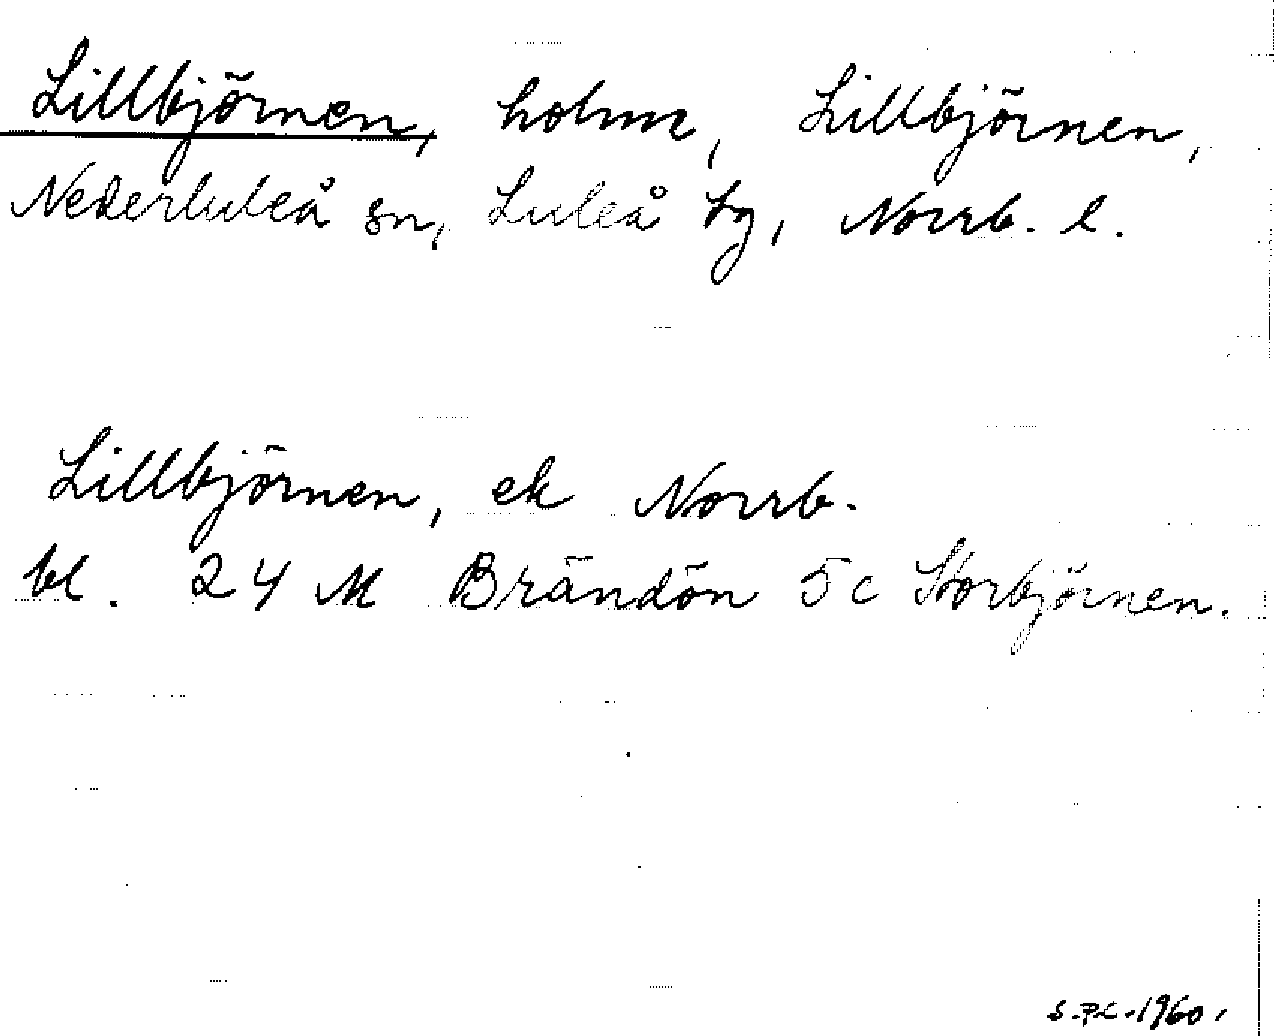 Lillbjörnen, holme, Lillbjörnen,
Nederluleå sn, Luleå tg, Norrb. l.
Lillbjörnen, ek Norrb.
bl. 24 M Brändön 5c Storbjörnen.
S.P.L. 1960.